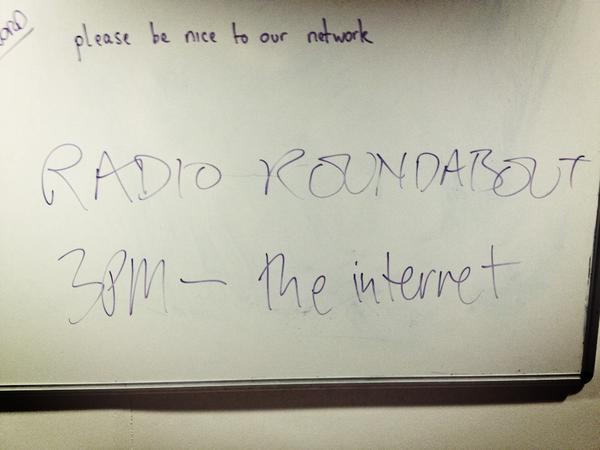 please be nice to our network
RADIO ROUNDABOUT
3PM - the internet